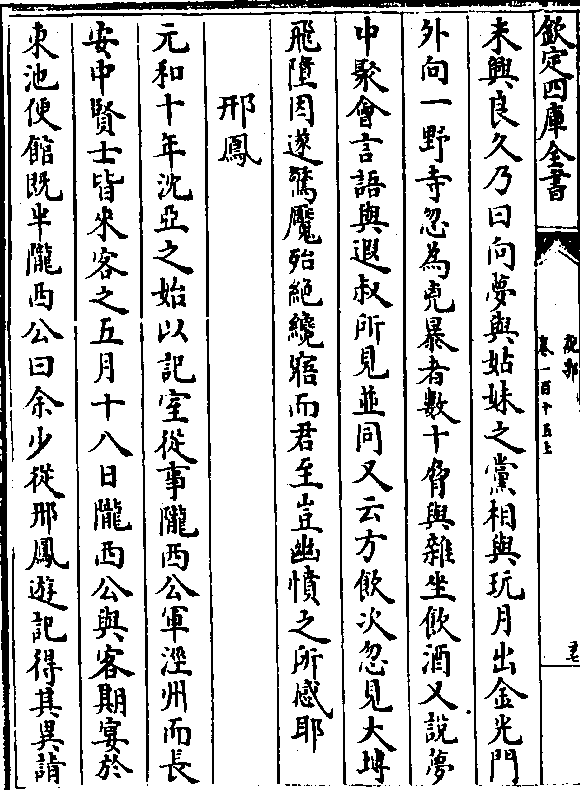 欽定四庫全書
說郛
卷一百十五上
来興良久乃曰向夢與姑妹之黨相與玩月出金光門
外向一野寺忽為兇暴者數十脅與雜坐飲酒又說夢
中聚會言語與遐叔所見並同又云方飲次忽見大塼
飛墮因遂驚魘殆絶纔寤而君至豈幽憤之所感耶
邢鳳
元和十年沈亞之始以記室從事隴西公軍涇州而長
安中賢士皆来客之五月十八日隴西公與客期宴於
東池便館既半隴西公曰余少從邢鳳遊記得其異請